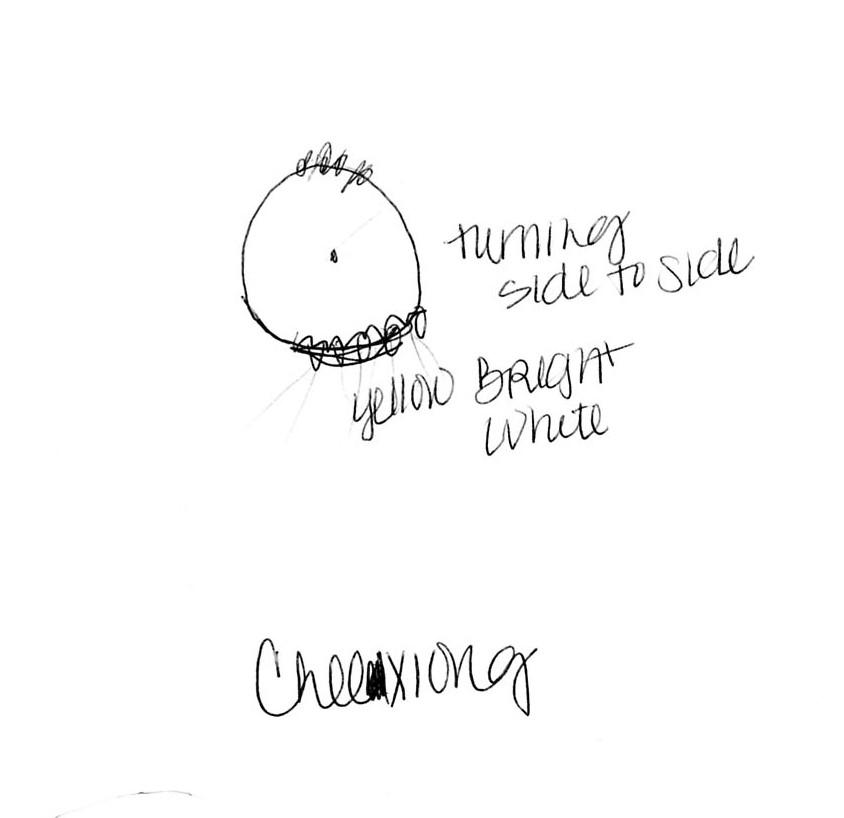 turning
side to side
yellow BRIGHT
White
Cheexiong